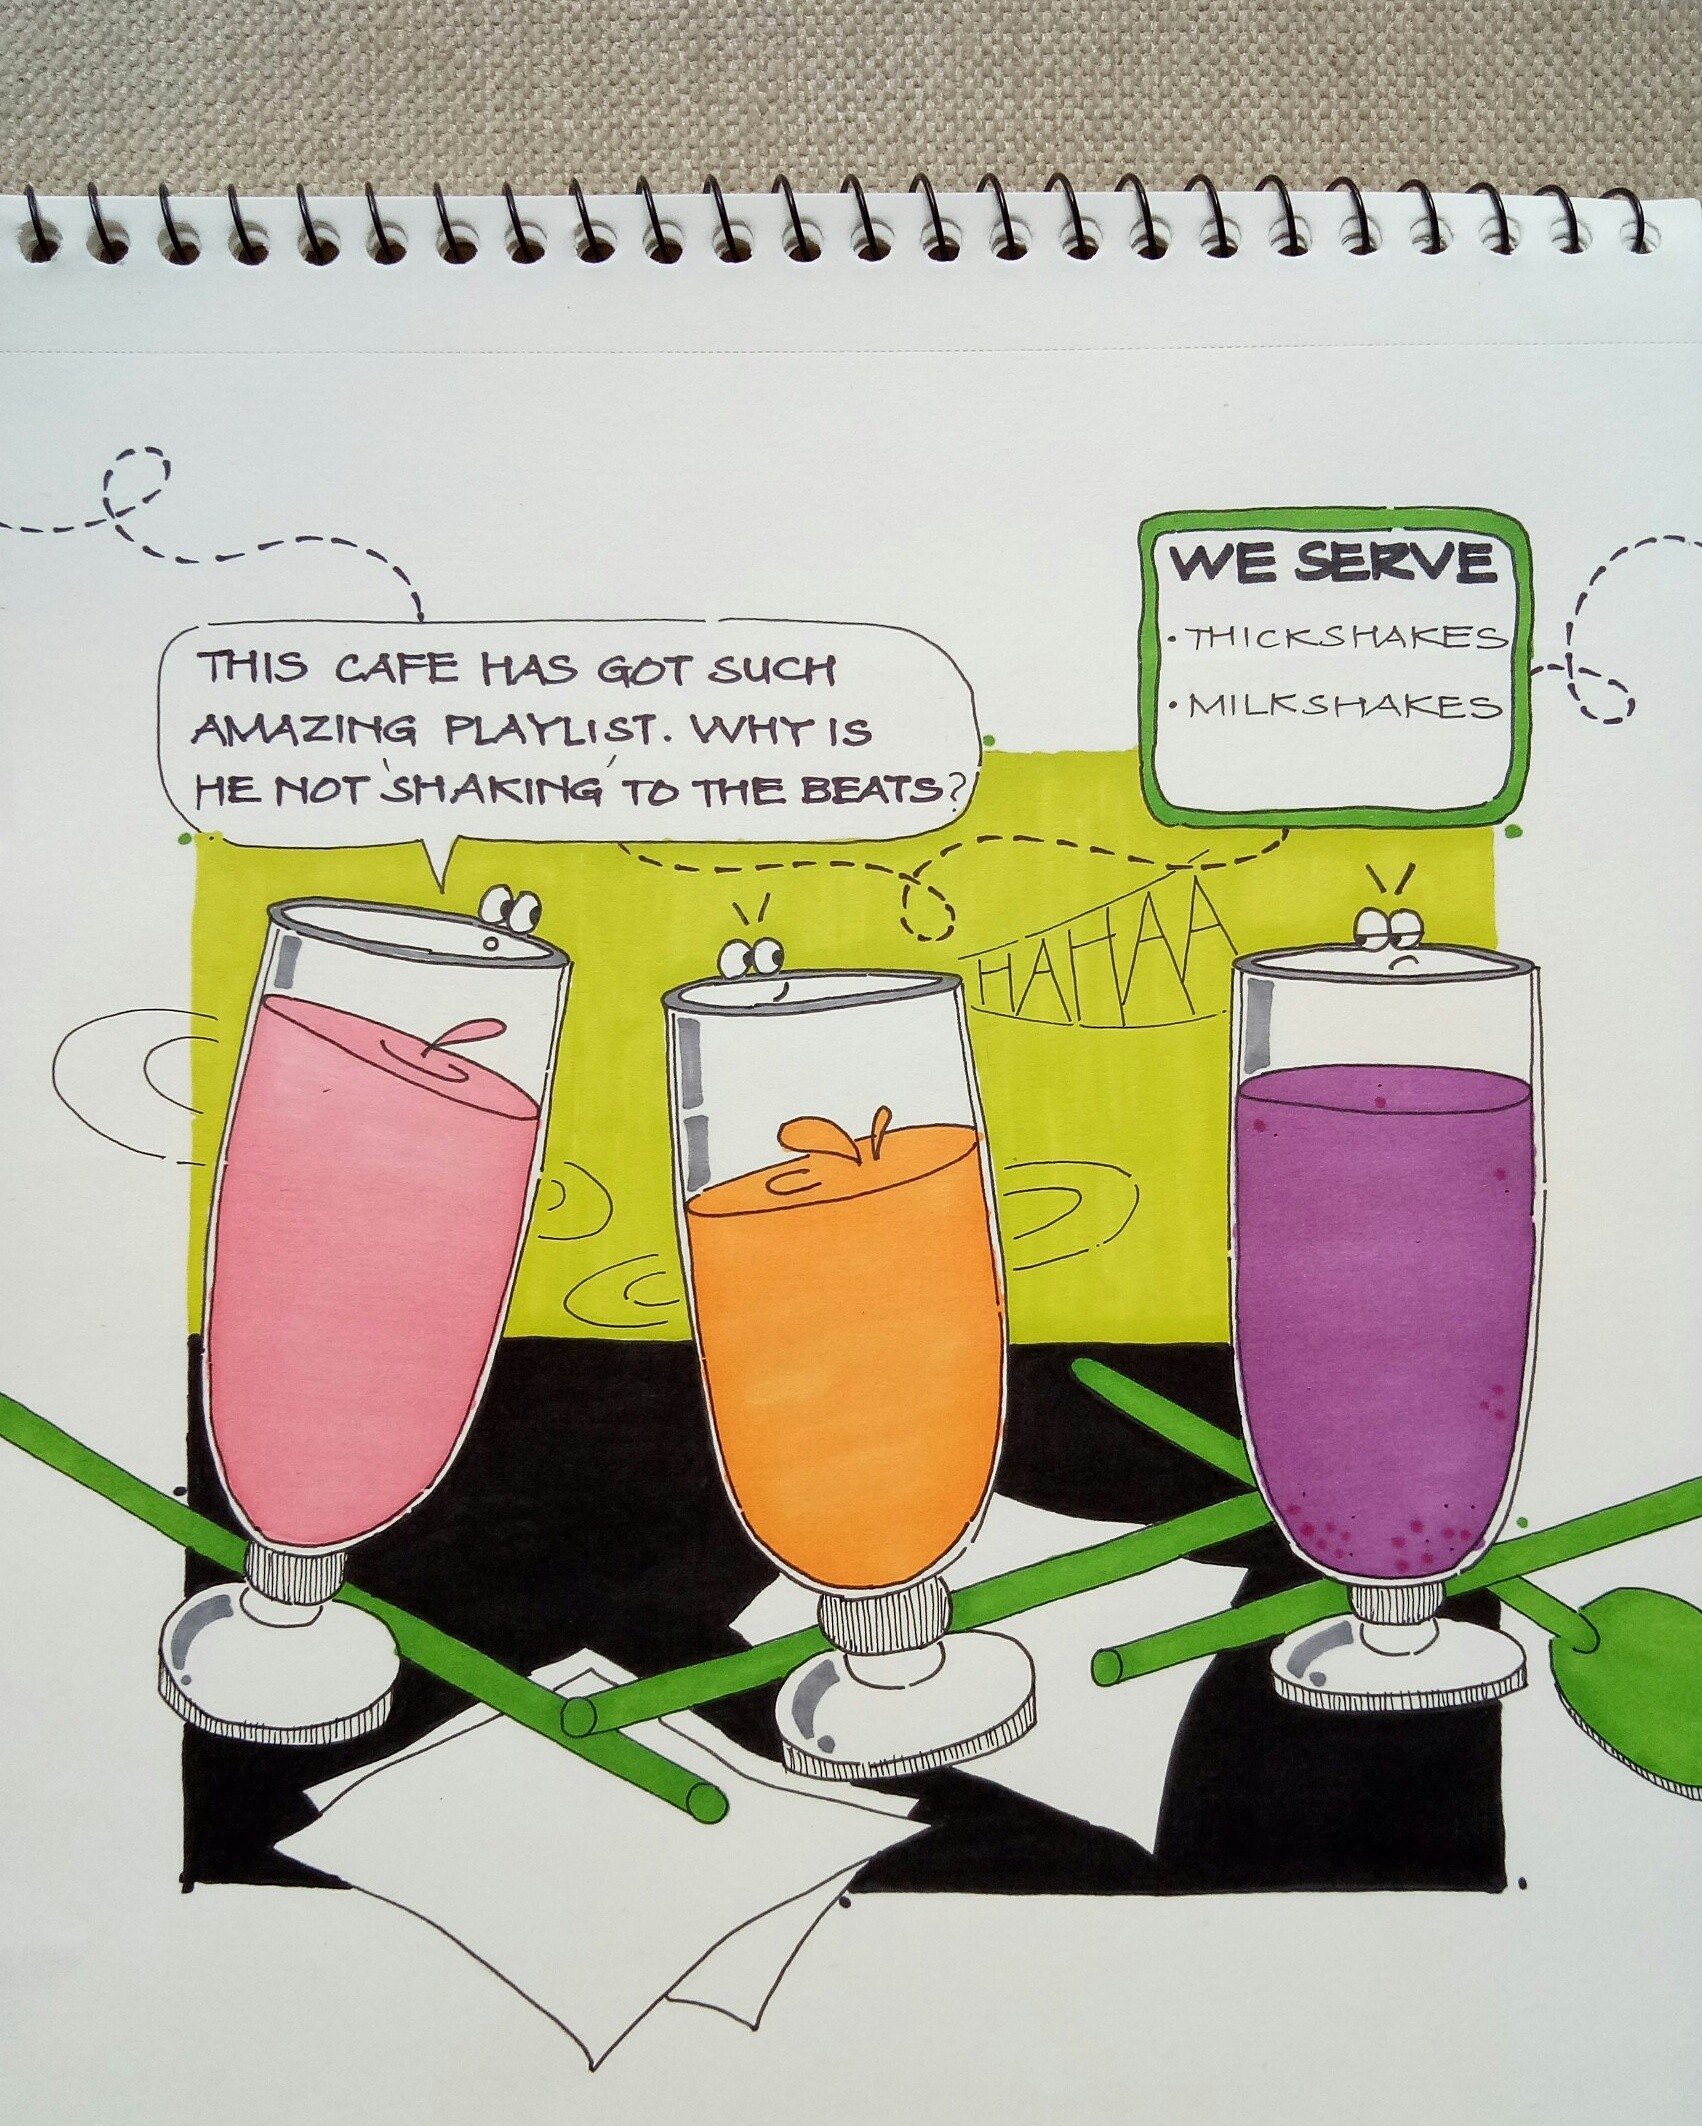 WE SERVE
• THICKSHAKES
• MILKSHAKES
THIS CAFE HAS GOT SUCH
AMAZING PLAYLIST. WHY IS
HE NOT 'SHAKING' TO THE BEATS?
HAHAA